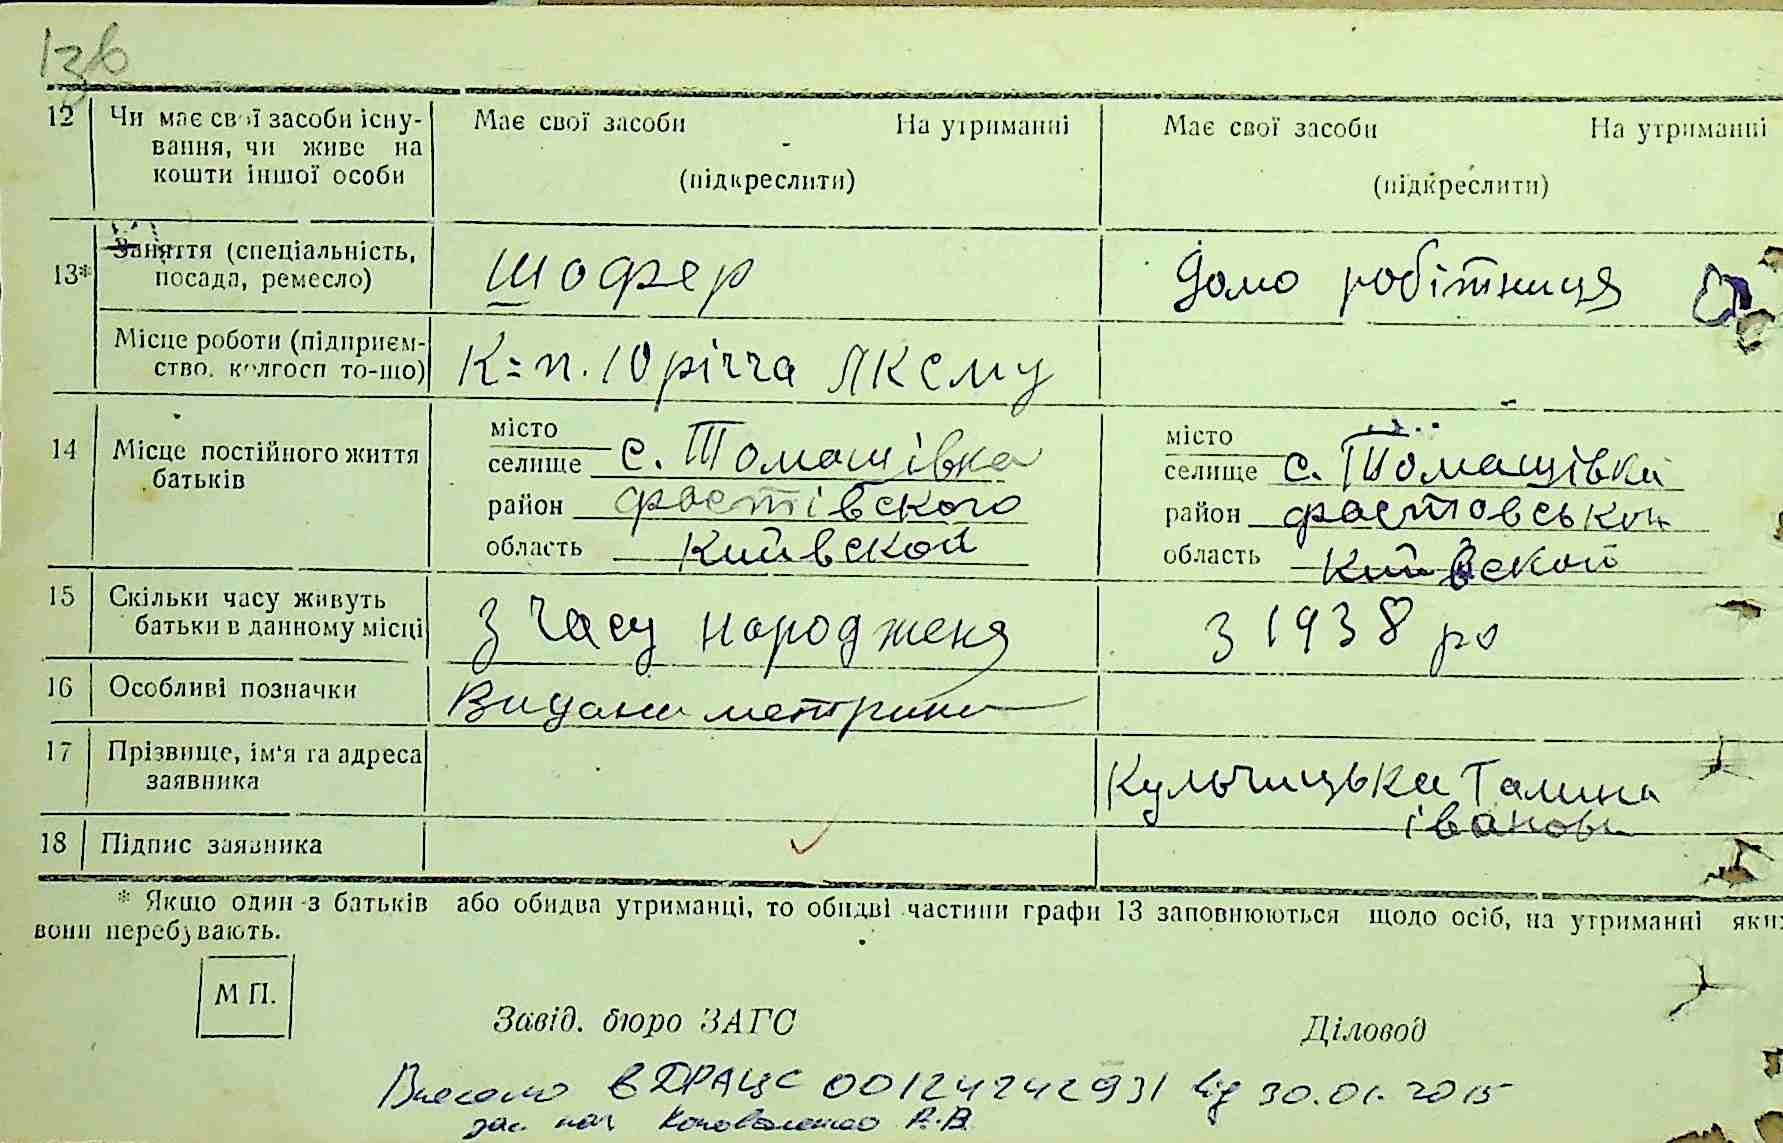 136
12 Чи має свої засоби існу-
вання, чи живе на
кошти іншої особи
Має свої засоби На утриманні
(підкреслити)
Має свої засоби На утриманні
(підкреслити)
13* Заняття (спеціальність,
посада, ремесло)
шофер
домо робітниця
Місце роботи (підприєм-
ство, колгосп то-що)
К=п. 10 річча ЛКСМУ
14 Місце постійного життя
батьків
місто
селище с. Томашівка
район фастівского
область Київской
місто
селище с. Томашівка
район фастовськой
область Київской
15 Скільки часу живуть
батьки в данному місці
з часу народженя
з 1938 ро
16 Особливі позначки
Видани метрики
17 Прізвище, ім'я та адреса
заявника
Кульчицька Галина
іванов
18 Підпис заявника
* Якщо один з батьків або обидва утриманці, то обидві частини графи 13 заповнюються щодо осіб, на утриманні яких
вони перебувають.
М П.
Завід. бюро ЗАГС Діловод
Внесено в ДРАЦС 00124242931 від 30.01.2015
зас нач Коноваленко А.В